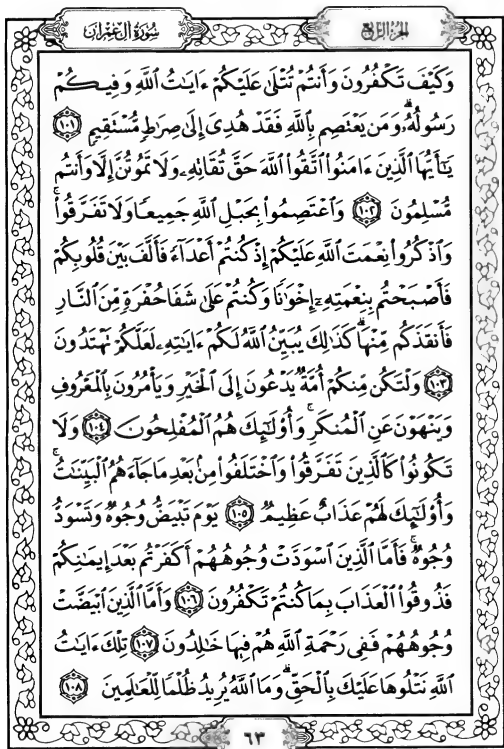 سُورَةُ آلِ عِمْرَانَ
الجُزْءُ الرَّابِعُ
وَكَيْفَ تَكْفُرُونَ وَأَنتُمْ تُتْلَىٰ عَلَيْكُمْ ءَايَـٰتُ ٱللَّهِ وَفِيكُمْ
رَسُولُهُۥۗ وَمَن يَعْتَصِم بِٱللَّهِ فَقَدْ هُدِىَ إِلَىٰ صِرَٰطٍ مُّسْتَقِيمٍ ١٠١
يَـٰٓأَيُّهَا ٱلَّذِينَ ءَامَنُوا۟ ٱتَّقُوا۟ ٱللَّهَ حَقَّ تُقَاتِهِۦ وَلَا تَمُوتُنَّ إِلَّا وَأَنتُم
مُّسْلِمُونَ ١٠٢ وَٱعْتَصِمُوا۟ بِحَبْلِ ٱللَّهِ جَمِيعًا وَلَا تَفَرَّقُوا۟ۚ
وَٱذْكُرُوا۟ نِعْمَتَ ٱللَّهِ عَلَيْكُمْ إِذْ كُنتُمْ أَعْدَآءً فَأَلَّفَ بَيْنَ قُلُوبِكُمْ
فَأَصْبَحْتُم بِنِعْمَتِهِۦٓ إِخْوَٰنًا وَكُنتُمْ عَلَىٰ شَفَا حُفْرَةٍ مِّنَ ٱلنَّارِ
فَأَنقَذَكُم مِّنْهَاۗ كَذَٰلِكَ يُبَيِّنُ ٱللَّهُ لَكُمْ ءَايَـٰتِهِۦ لَعَلَّكُمْ تَهْتَدُونَ
١٠٣ وَلْتَكُن مِّنكُمْ أُمَّةٌ يَدْعُونَ إِلَى ٱلْخَيْرِ وَيَأْمُرُونَ بِٱلْمَعْرُوفِ
وَيَنْهَوْنَ عَنِ ٱلْمُنكَرِۚ وَأُو۟لَـٰٓئِكَ هُمُ ٱلْمُفْلِحُونَ ١٠٤ وَلَا
تَكُونُوا۟ كَٱلَّذِينَ تَفَرَّقُوا۟ وَٱخْتَلَفُوا۟ مِنۢ بَعْدِ مَا جَآءَهُمُ ٱلْبَيِّنَـٰتُۚ
وَأُو۟لَـٰٓئِكَ لَهُمْ عَذَابٌ عَظِيمٌ ١٠٥ يَوْمَ تَبْيَضُّ وُجُوهٌ وَتَسْوَدُّ
وُجُوهٌۚ فَأَمَّا ٱلَّذِينَ ٱسْوَدَّتْ وُجُوهُهُمْ أَكَفَرْتُم بَعْدَ إِيمَـٰنِكُمْ
فَذُوقُوا۟ ٱلْعَذَابَ بِمَا كُنتُمْ تَكْفُرُونَ ١٠٦ وَأَمَّا ٱلَّذِينَ ٱبْيَضَّتْ
وُجُوهُهُمْ فَفِى رَحْمَةِ ٱللَّهِ هُمْ فِيهَا خَـٰلِدُونَ ١٠٧ تِلْكَ ءَايَـٰتُ
ٱللَّهِ نَتْلُوهَا عَلَيْكَ بِٱلْحَقِّۗ وَمَا ٱللَّهُ يُرِيدُ ظُلْمًا لِّلْعَـٰلَمِينَ ١٠٨
٦٣